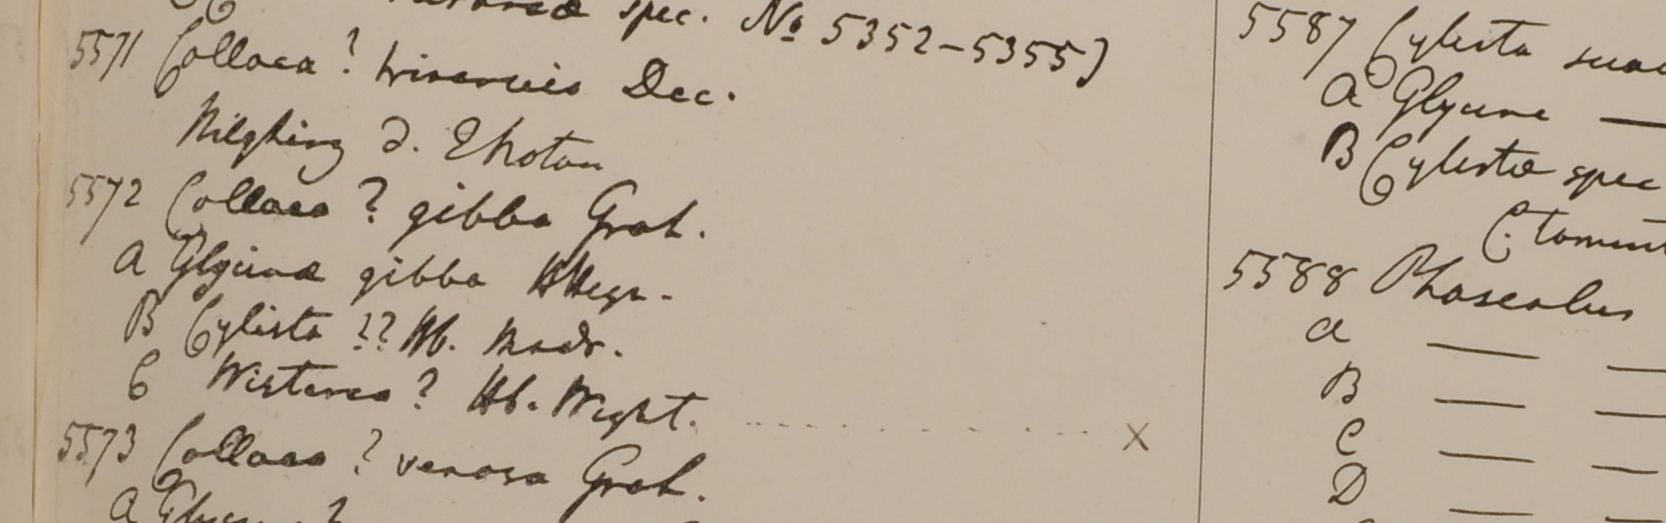 spec. No 5352-5355)
5571 Collaea ? trinervis Dec.
d.
5572 Collaea ? gibba Grah.
A Glycine gibba HHeyn.
B Cylista ?? Hb. Madr.
C Wisteria ? Hb. Wight. x
5573 Collaea ? venosa Grah.
A Glycine ?
5587 Cylista
A Glycine —
B Cylista spec
C. toment
5588 Phaseolus
A — —
B — —
C — —
D — —